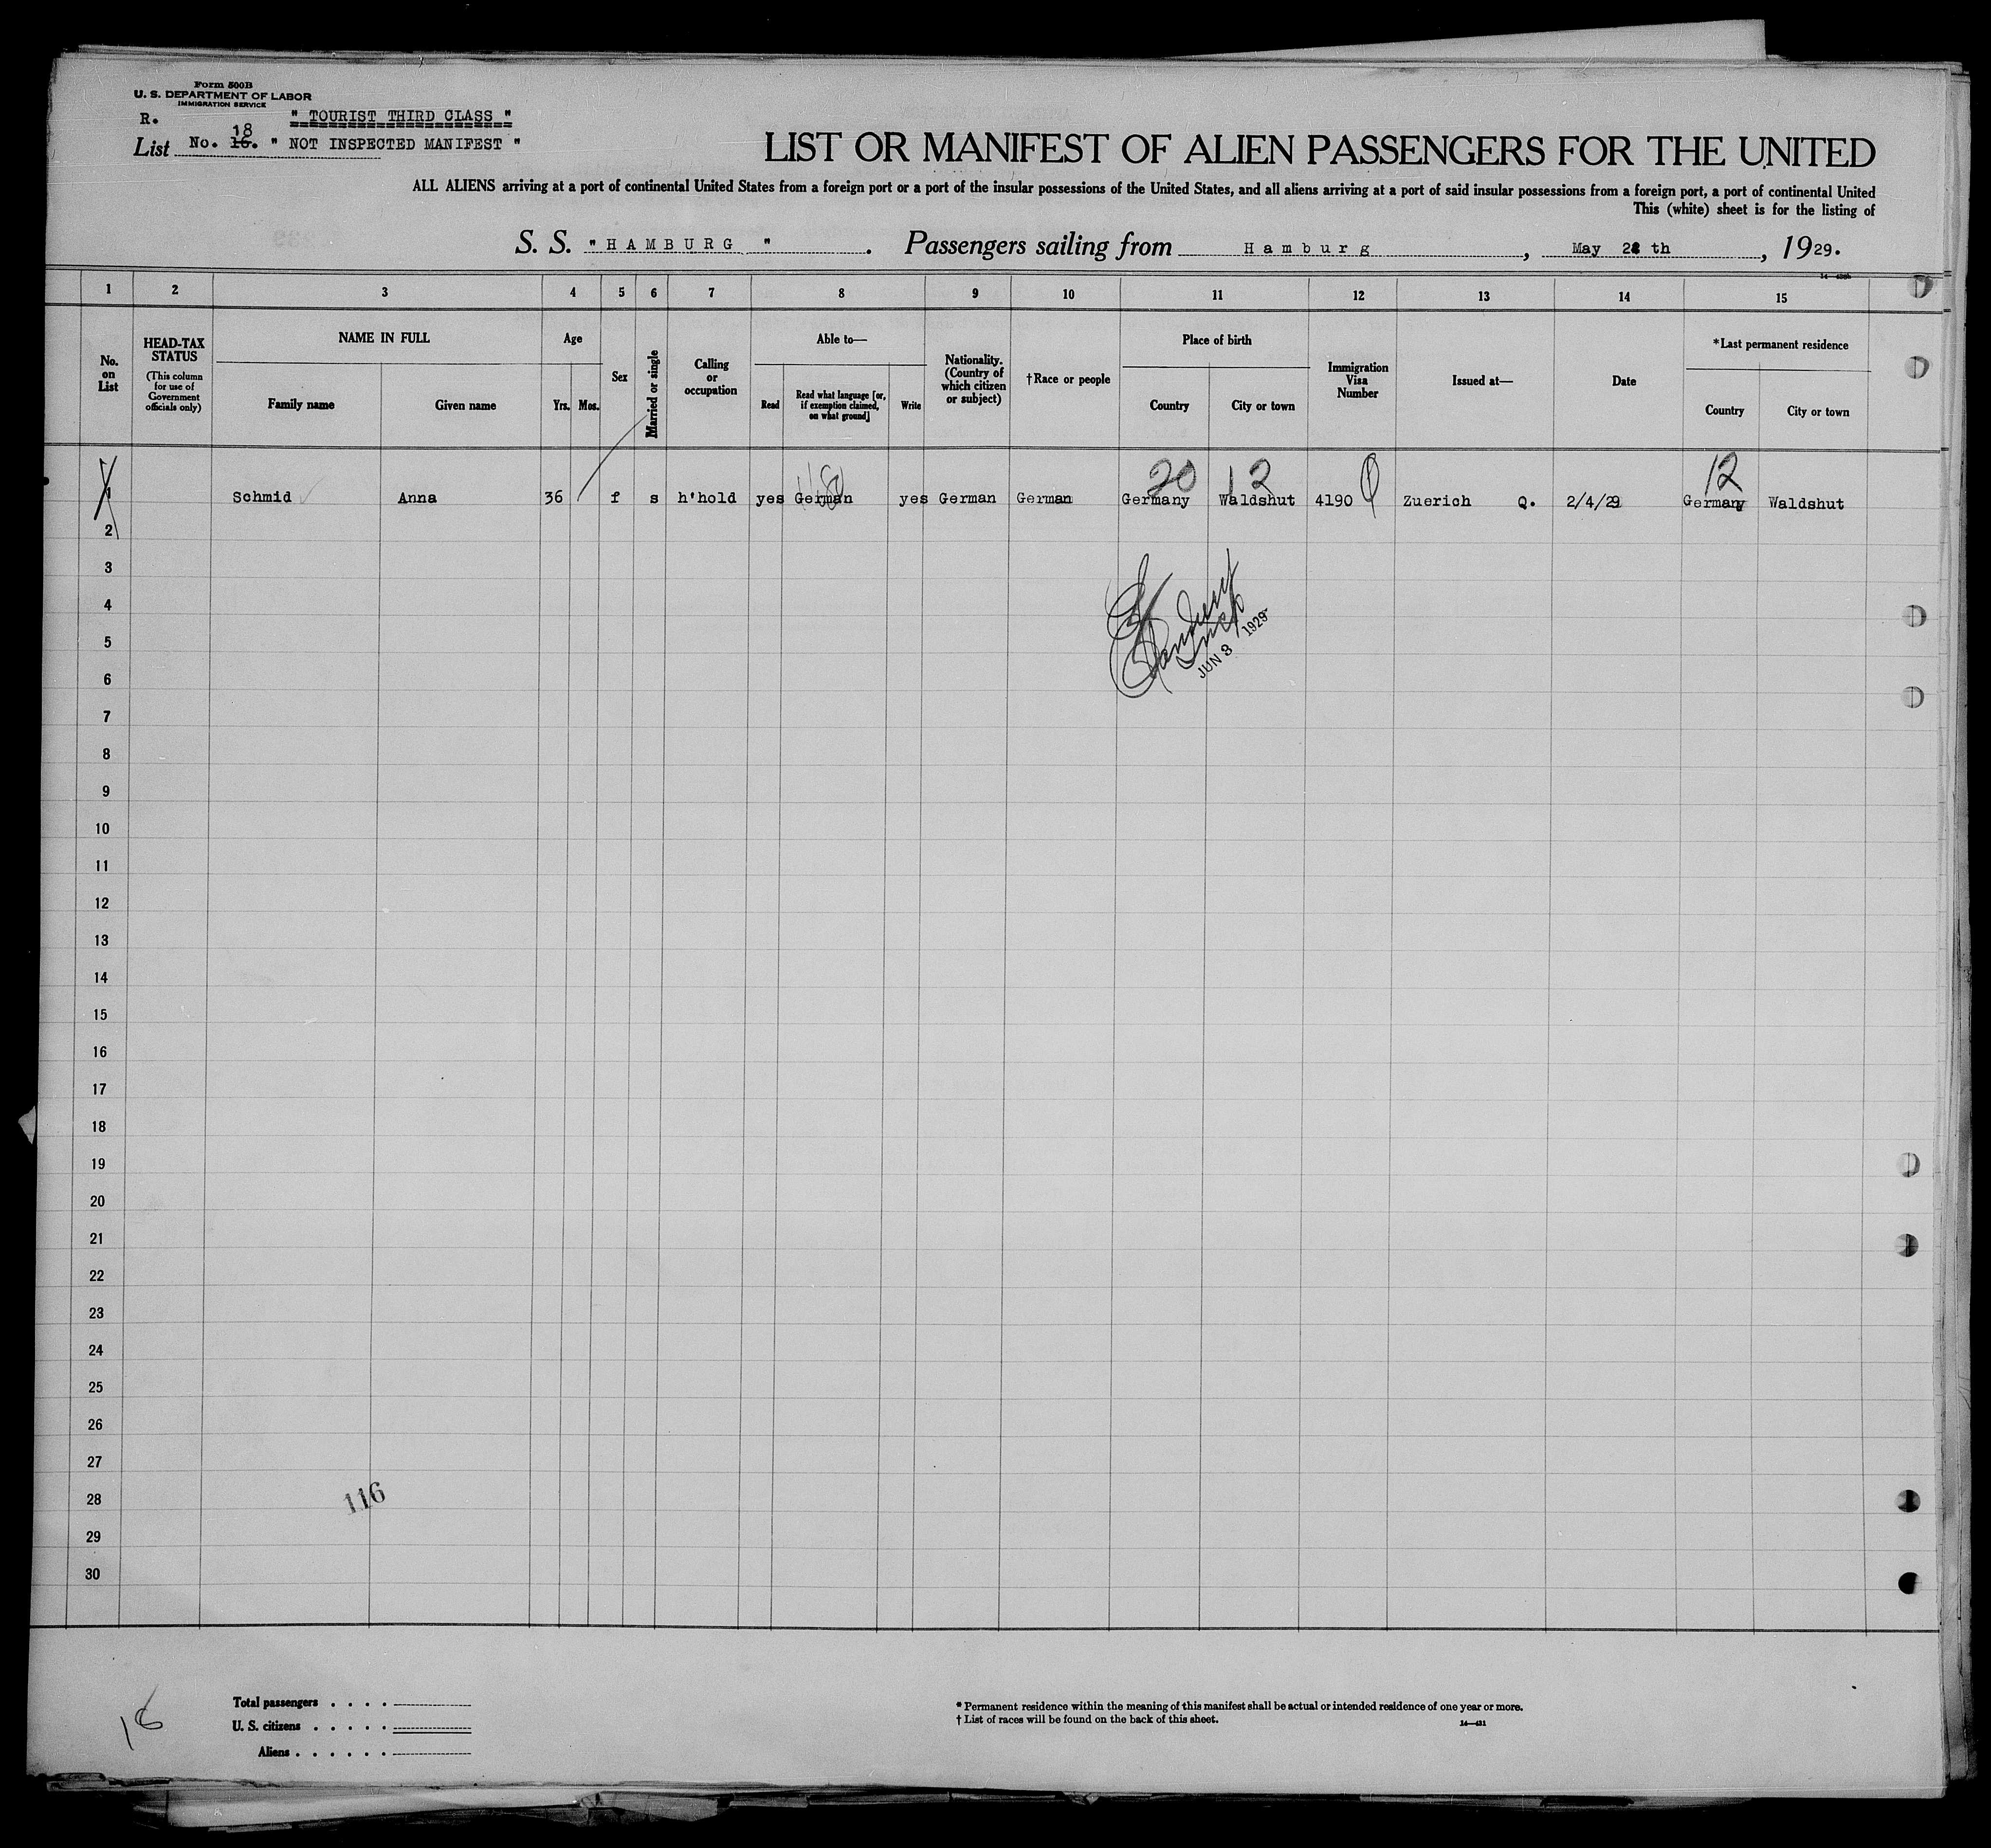 Form 500B
U. S. DEPARTMENT OF LABOR
IMMIGRATION SERVICE
R. " TOURIST THIRD CLASS "
18
List No. 16. " NOT INSPECTED MANIFEST "
LIST OR MANIFEST OF ALIEN PASSENGERS FOR THE UNITED
ALL ALIENS arriving at a port of continental United States from a foreign port or a port of the insular possessions of the United States, and all aliens arriving at a port of said insular possessions from a foreign port, a port of continental United
This (white) sheet is for the listing of
S. S. " HAMBURG " . Passengers sailing from Hamburg , May 28 th , 1929.
1 2 3 4 5 6 7 8 9 10 11 12 13 14 15
No. on List
HEAD-TAX STATUS
(This column for use of Government officials only)
NAME IN FULL
Family name Given name
Age
Yrs. Mos.
Sex
Married or single
Calling or occupation
Able to—
Read Read what language [or, if exemption claimed, on what ground] Write
Nationality. (Country of which citizen or subject)
†Race or people
Place of birth
Country City or town
Immigration Visa Number
Issued at—
Date
*Last permanent residence
Country City or town
20 12 12
1 Schmid Anna 36 f s h'hold yes German yes German German Germany Waldshut 4190 Zuerich Q. 2/4/29 Germany Waldshut
2
3
4
5
JUN 8 1929
6
7
8
9
10
11
12
13
14
15
16
17
18
19
20
21
22
23
24
25
26
27
28
116
29
30
Total passengers . . . .
U. S. citizens . . . . .
Aliens . . . . . .
16
* Permanent residence within the meaning of this manifest shall be actual or intended residence of one year or more.
† List of races will be found on the back of this sheet.
14—421